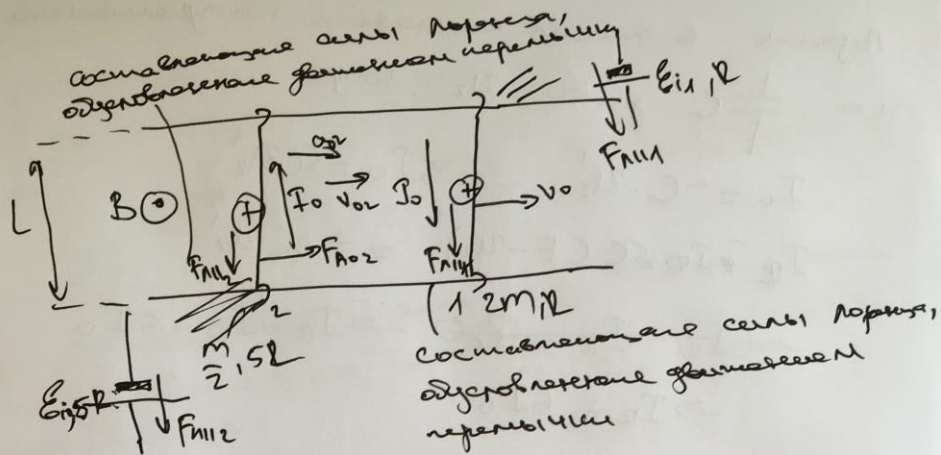 составляющие силы Лоренца,
обусловленная движением перемычки
Ei1, R
FЛ||1
L
B
I0
V02
I0
V0
FЛ||2
FA02
FЛ||1
2
1 2m, R
m/2, 5R
составляющая силы Лоренца,
обусловленная движением
перемычки
FЛ||2